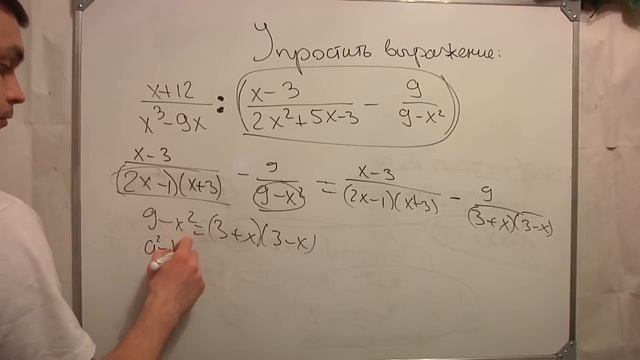 Упростить выражение:
x+12 / x³-9x : (x-3 / 2x²+5x-3 - 9 / 9-x²)
x-3 / (2x-1)(x+3) - 9 / 9-x² = x-3 / (2x-1)(x+3) - 9 / (3+x)(3-x)
9-x² = (3+x)(3-x)
a²-